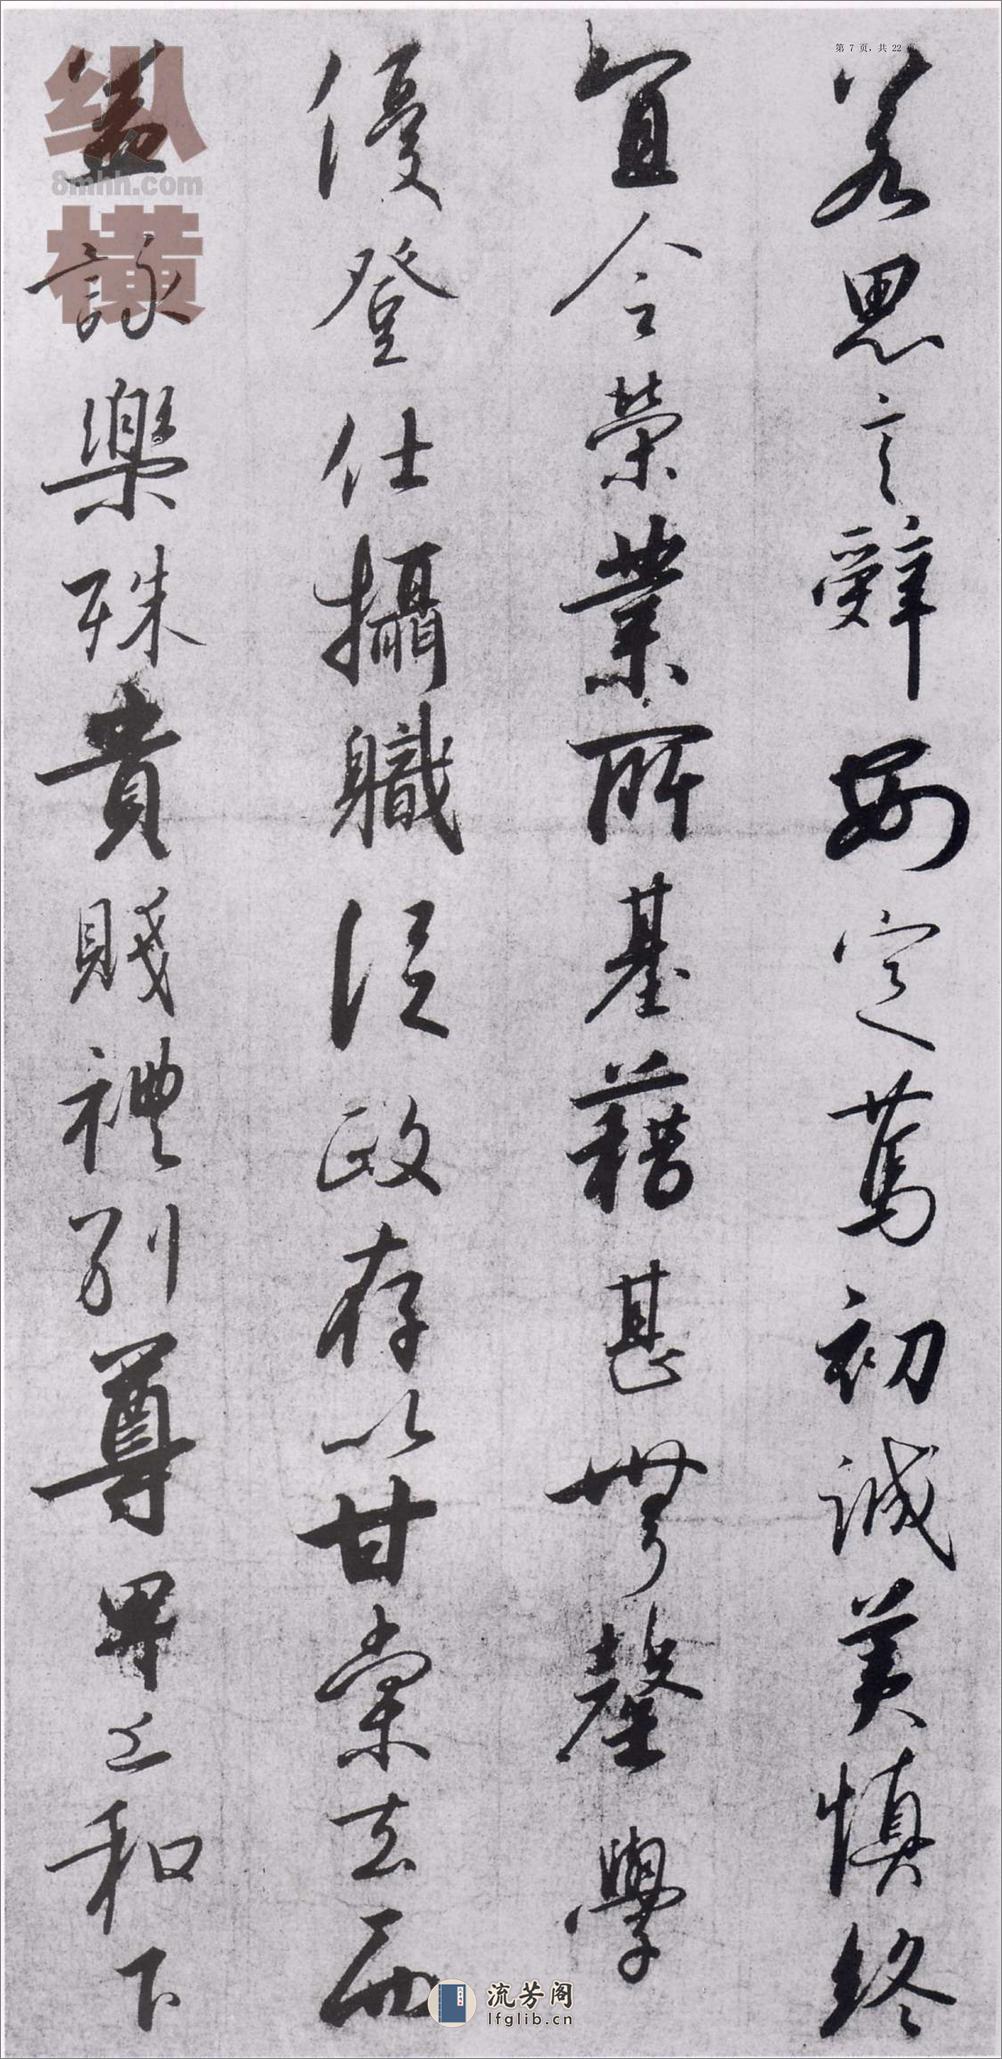 第 7 页，共 22 页
若思言辭安定篤初誠美慎終
宜令榮業所基藉甚無馨學
優登仕攝職從政存以甘棠去而
益詠樂殊貴賤禮別尊卑上和下
纵横
8mhh.com
流芳阁
lfglib.cn